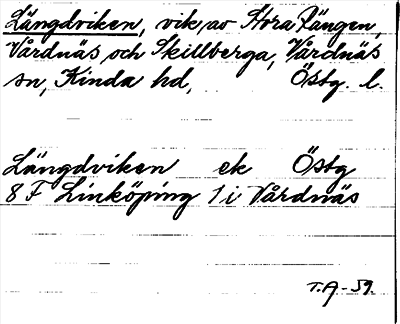 Längdviken, vik av Stora Rängen,
Vårdnäs och Skillberga, Vårdnäs
sn, Kinda hd, Östg. l.
Längdviken ek Östg
8 F Linköping 1 i Vårdnäs
T.A-59.